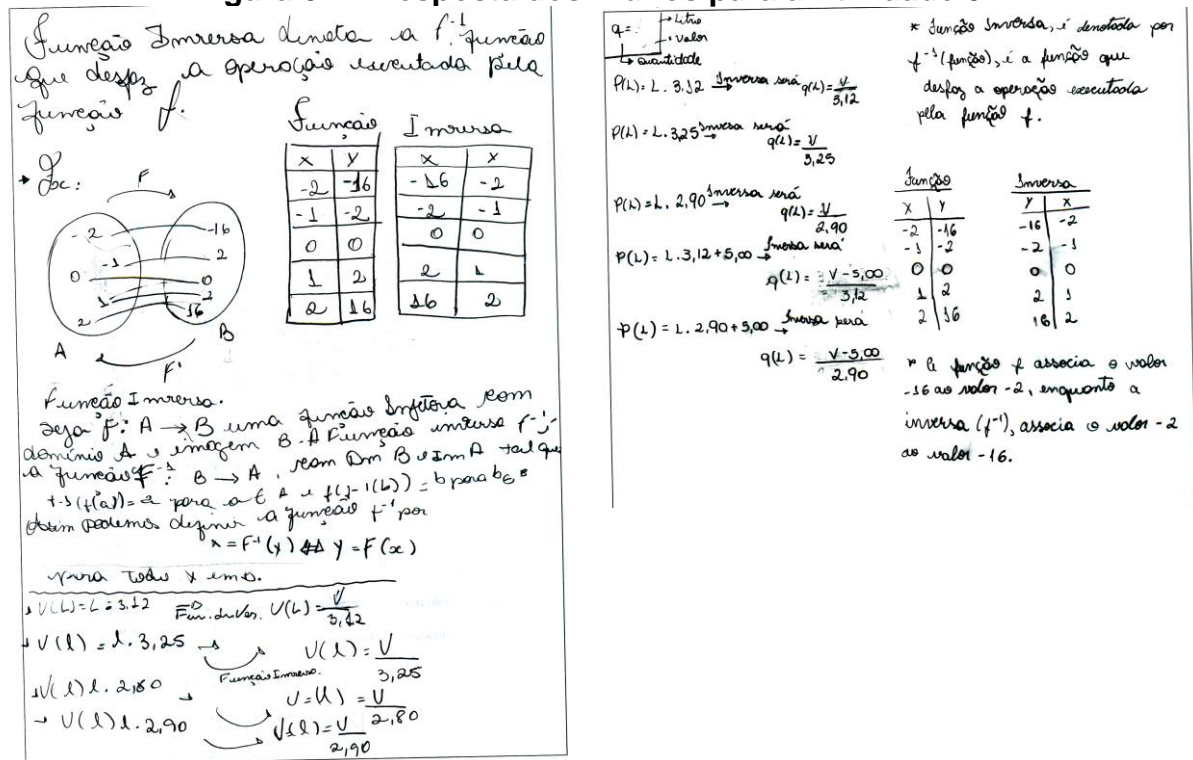 Função Inversa denota a f⁻¹. função
que desfaz a operação executada pela
função f.
Função
Inversa
x y
-2 -16
-1 -2
0 0
1 2
2 16
x x
-16 -2
-2 -1
0 0
2 1
16 2
Ex:
F
-2
-1
0
1
2
-16
-2
0
2
16
A
B
F'
Função Inversa.
Seja f: A → B uma função Injetora com
domínio A e imagem B. A Função inversa f⁻¹
a função F⁻¹: B → A, com Dm B e Im A tal que
f-1(f(a)) = a para a ∈ A e f(f-1(b)) = b para b ∈ B
Assim podemos definir a função f⁻¹ por
x = F⁻¹(y) ⇔ y = F(x)
para todo y em B.
V(L) = L . 3.12 V(L) = V/3,12
V(l) = l. 3,25 → V(l) = V/3,25
Função Inversa.
V(l) l. 2,80 → V=(l) = V/2,80
→ V(l) l. 2,90 V(l) = V/2,90
q = Litro
Valor
quantidade
P(L) = L. 3.12 Inversa será q(L) = V/3,12
P(L) = L. 3,25 Inversa será
q(L) = V/3,25
P(L) = L. 2,90 Inversa será
q(L) = V/2,90
P(L) = L. 3,12 + 5,00 Inversa será
q(L) = V-5,00/3,12
P(L) = L. 2,90 + 5,00 Inversa será
q(L) = V-5,00/2,90
* Função Inversa, é denotada por
f⁻¹ (função), é a função que
desfaz a operação executada
pela função f.
Função
X Y
-2 -16
-1 -2
0 0
1 2
2 16
Inversa
Y X
-16 -2
-2 -1
0 0
2 1
16 2
* A função f associa o valor
-16 ao valor -2, enquanto a
inversa (f⁻¹), associa o valor -2
ao valor -16.